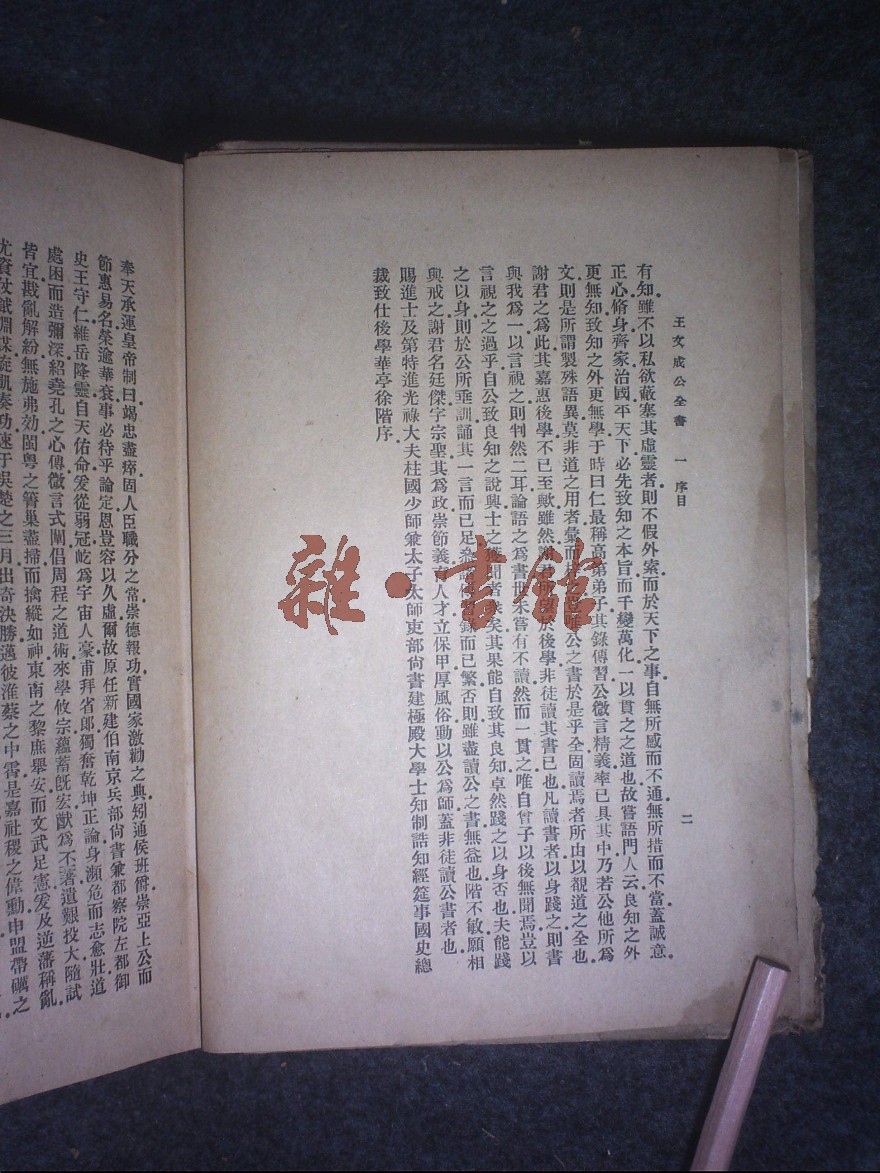 王文成公全書 一 序目
二
有知雖不以私欲蔽塞其虛靈者則不假外索而於天下之事自無所感而不通無所措而不當蓋誠意
正心脩身齊家治國平天下必先致知之本旨而千變萬化一以貫之之道也故嘗語門人云良知之外
更無知致知之外更無學于時曰仁最稱高第弟子其錄傳習公微言精義率已具其中乃若公他所為
文則是所謂製殊語異莫非道之用者彙而唯公之書於是乎全固讀焉者所由以覩道之全也
謝君之為此其嘉惠後學不已至歟雖然謝於後學非徒讀其書已也凡讀書者以身踐之則書
與我為一以言視之則判然二耳論語之為書世未嘗有不讀然而一貫之唯自曾子以後無聞焉豈以
言視之之過乎自公致良知之說興士之獲聞者矣其果能自致其良知卓然踐之以身否也夫能踐
之以身則於公所垂訓誦其一言而已足錄而已繁否則雖盡讀公之書無益也階不敏願相
與戒之謝君名廷傑字宗聖其為政崇節義育人才立保甲厚風俗動以公為師蓋非徒讀公書者也
賜進士及第特進光祿大夫柱國少師兼太子太師吏部尚書建極殿大學士知制誥知經筵事國史總
裁致仕後學華亭徐階序
奉天承運皇帝制曰竭忠盡瘁固人臣職分之常崇德報功實國家激勸之典矧通侯班爵崇亞上公而
節惠易名榮逾華袞事必待乎論定恩豈容以久虛爾故原任新建伯南京兵部尚書兼都察院左都御
史王守仁維岳降靈自天佑命爰從弱冠屹為宇宙人豪甫拜省郎獨奮乾坤正論身瀕危而志愈壯道
處困而造彌深紹堯孔之心傳微言式闡倡周程之道術來學攸宗蘊蓄旣宏猷為丕著遺艱投大隨試
皆宜戡亂解紛無施弗効閩粤之箐巢盡掃而擒縱如神東南之黎庶舉安而文武足憲爰及逆藩稱亂
尤資仗鉞淵謀旋凱奏功速于吳楚之三月出奇決勝邁彼淮蔡之中霄是嘉社稷之偉勳申盟帶礪之
雜·書館